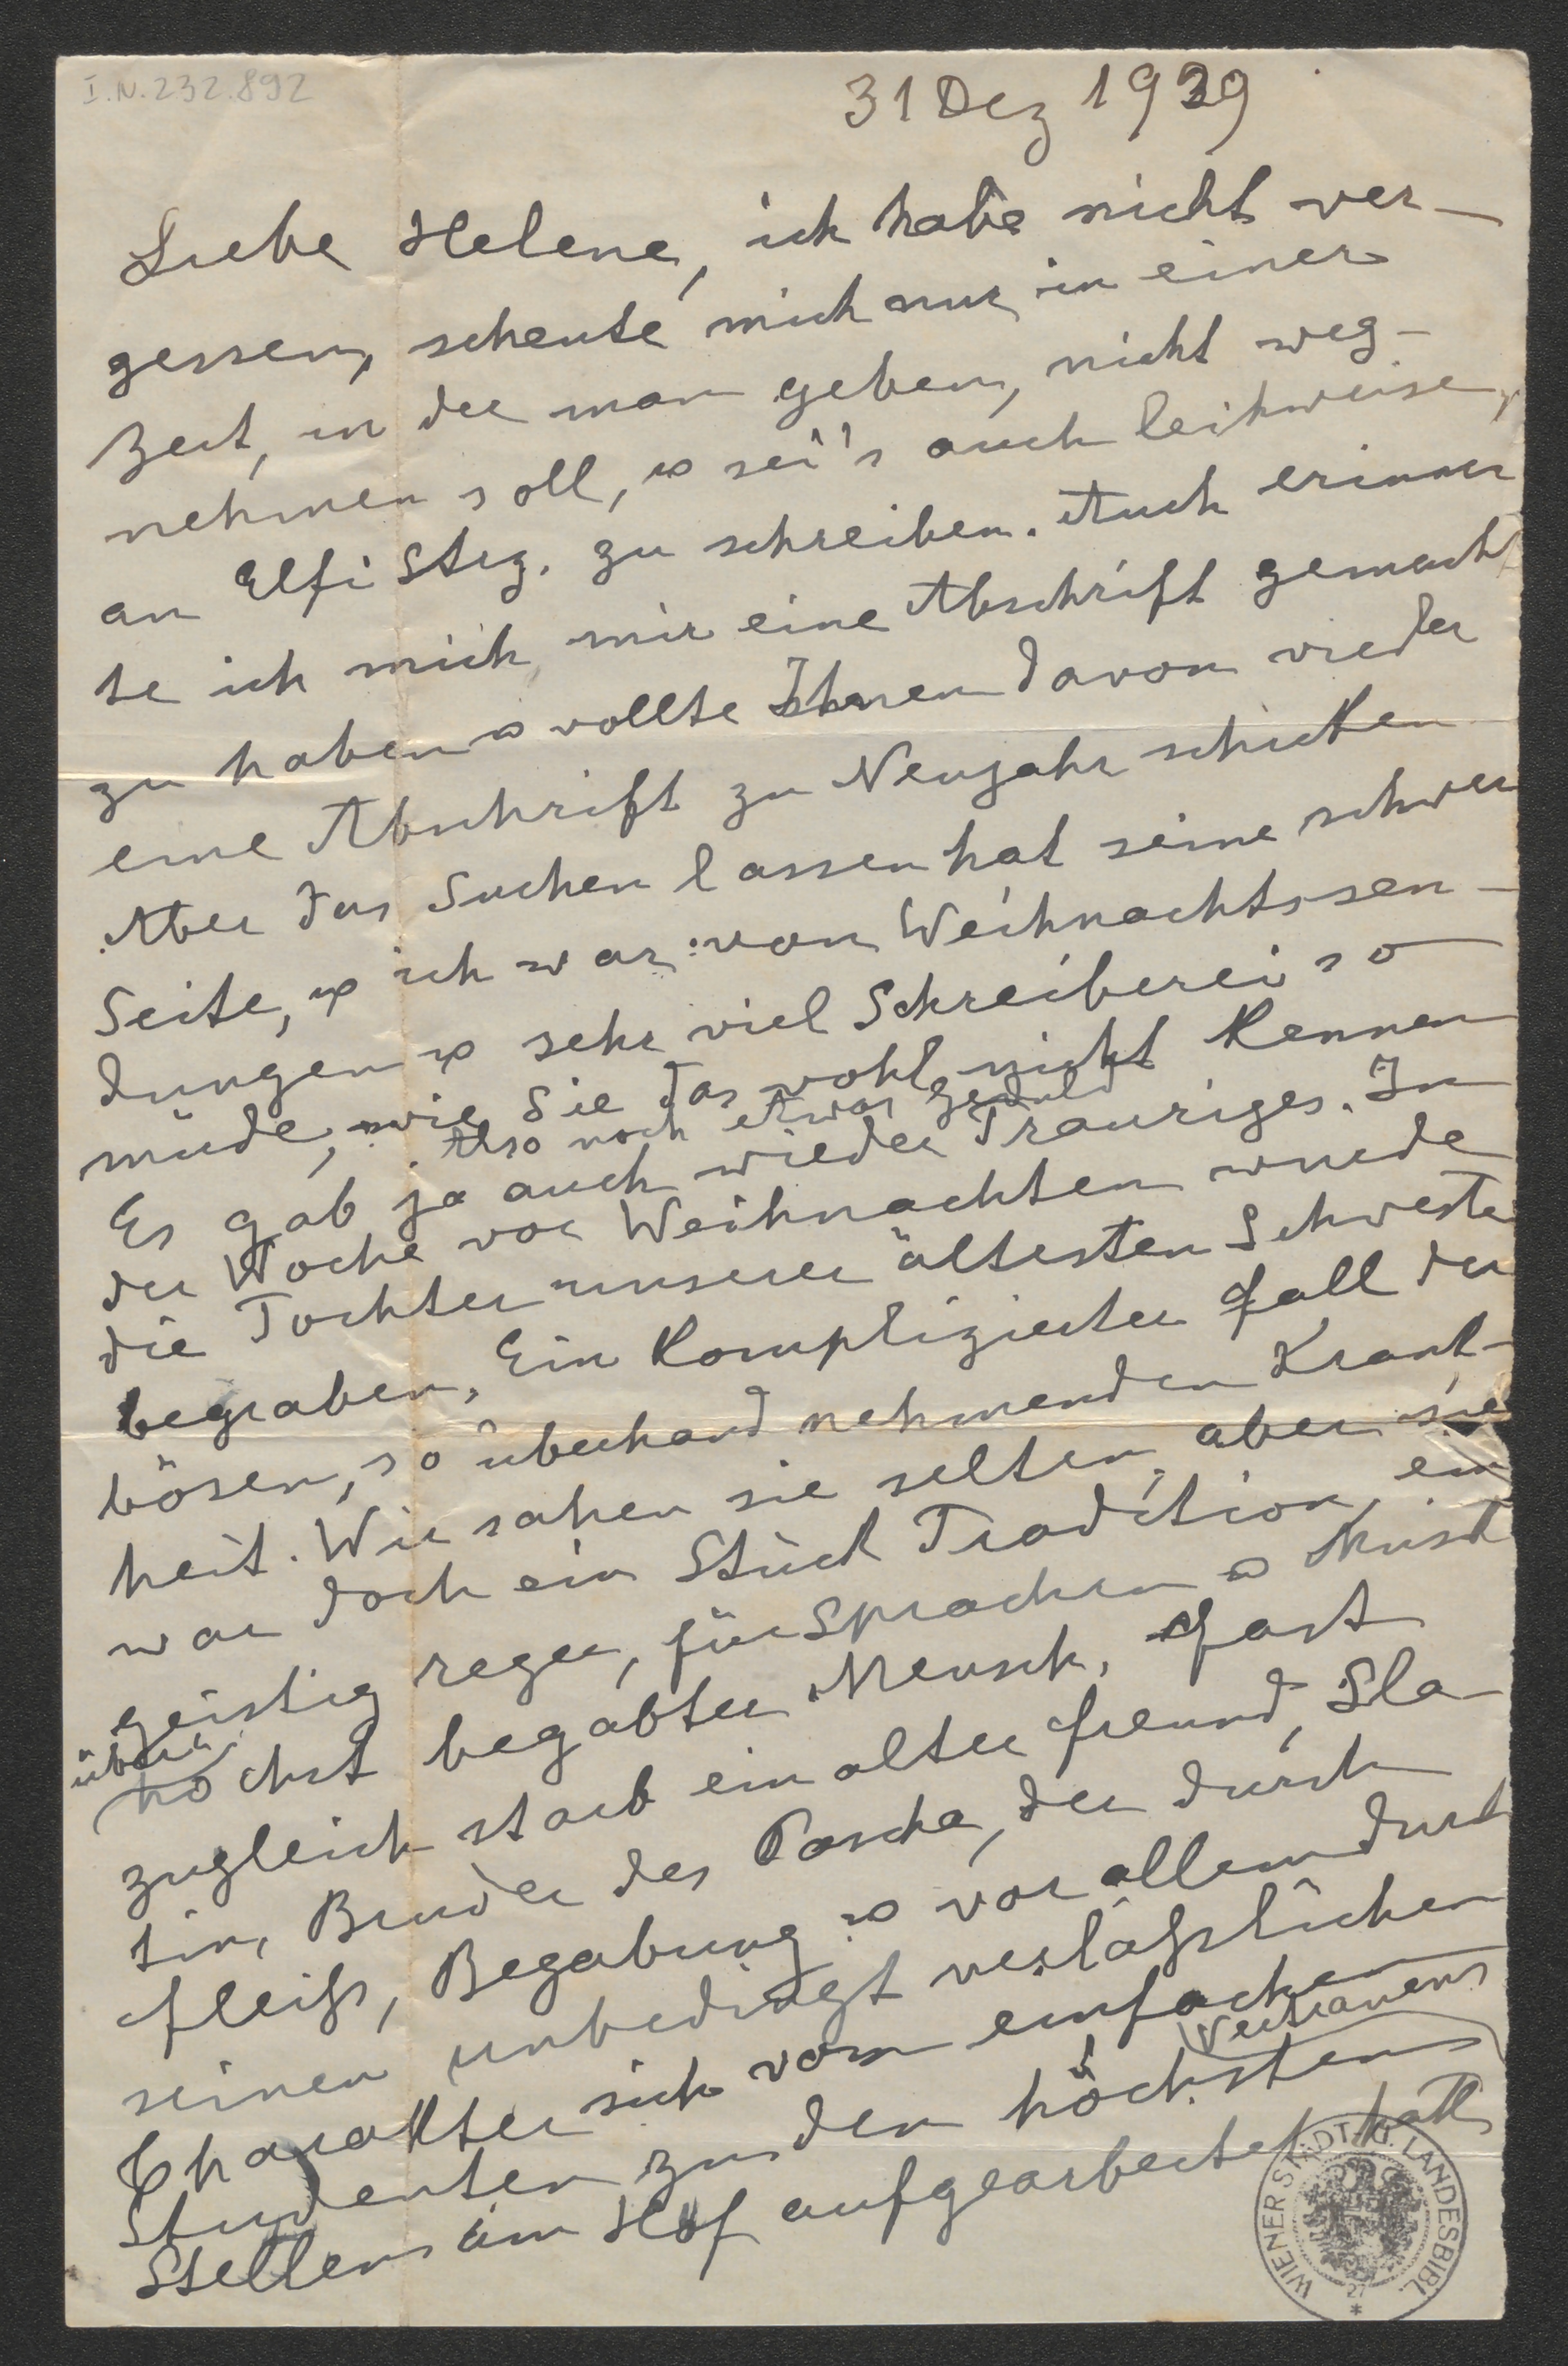 I.N.232.892
31 Dez 1939
Liebe Helene, ich habe nicht ver-
gessen, scheute mich nur in einer
Zeit, in der man geben, nicht weg-
nehmen soll, u sei's auch leihweise,
an Elfi Strz. zu schreiben. Auch erinner
te ich mich mir eine Abschrift gemacht
zu haben u wollte Ihnen davon wieder
eine Abschrift zu Neujahr schicken
Aber das Suchen lassen hat seine schwer
Seite, u ich war von Weihnachtssen-
dungen u sehr viel Schreiberei so
müde, wie Sie das wohl nicht kennen
Also noch etwas Geduld
Es gab ja auch wieder Trauriges. In
der Woche vor Weihnachten wurde
die Tochter unserer ältesten Schweste
begraben, Ein komplizierter Fall der
bösen, so überhand nehmenden Krank-
heit. Wir sahen sie selten, aber sie
war doch ein Stück Tradition, ein
geistig reger, für Sprachen u Musik
über
höchst begabter Mensch. Fast
zugleich starb ein alter Freund, Sla-
tin, Bruder des Pascha, der durch
Fleiß, Begabung u vor allem durch
seinen unbedingt verläßlichen
Charakter sich vom einfachen
Studenten zu den höchsten
Vertrauens
Stellen im Hof aufgearbeitet hatte
WIENER STADT- U. LANDESBIBL.